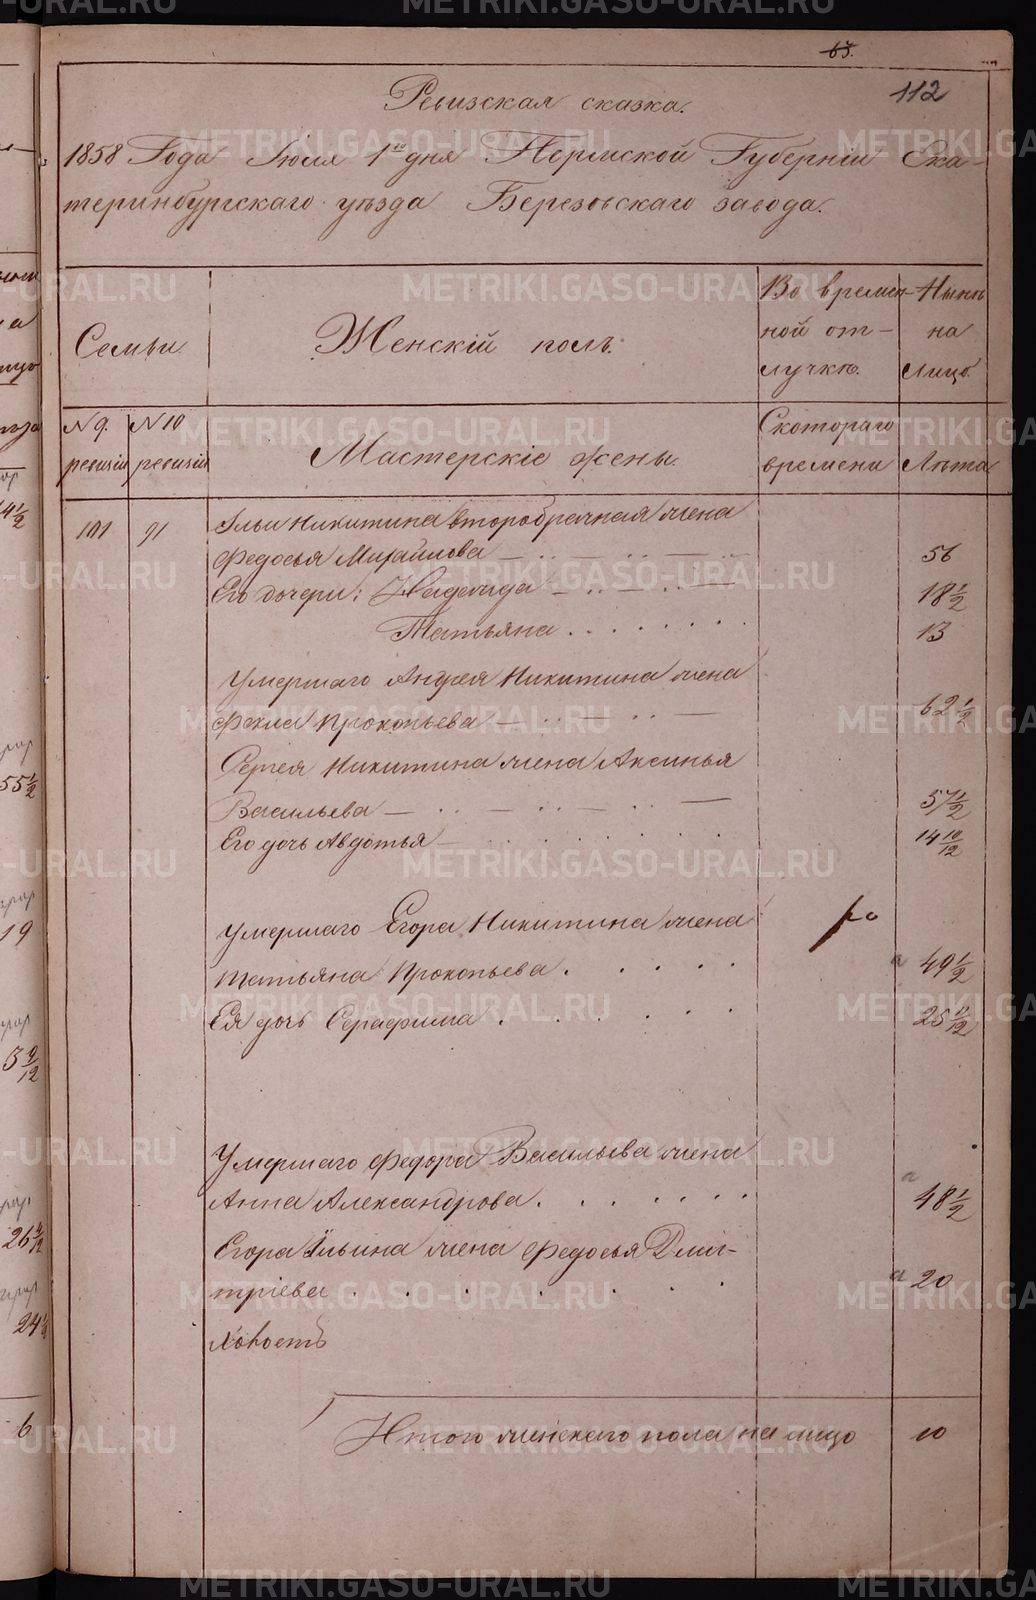 63.
112
Ревизская сказка.
1858 Года Іюля 1го дня Пермской Губерніи Ека-
теринбургскаго уѣзда Березовскаго завода.
Семьи
Женскій полъ.
Во времен-
ной от-
лучкѣ.
Нынѣ
на
лицо
N 9.
ревизіи
N 10
ревизіи
Мастерскіе жены.
Скотораго
времени
Лѣта
101
91
Ильи Никитина второбрачная жена
Федосья Михайлова
56
Его дочери: Надежда
18 1/2
Татьяна
13
Умершаго Андрея Никитина жена
Фекла Прокопьева
62 1/2
Сергея Никитина жена Аксинья
Васильева
57 1/2
Его дочь Авдотья
14 10/12
Умершаго Егора Никитина жена
Татьяна Прокопьева
49 1/2
Ея дочь Серафима
25
Умершаго Федора Васильева жена
Анна Александрова
48 1/2
Егора Ильина жена Федосья Дмит-
тріева
20
Итого женскаго пола на лицо
10
METRIKI.GASO-URAL.RU